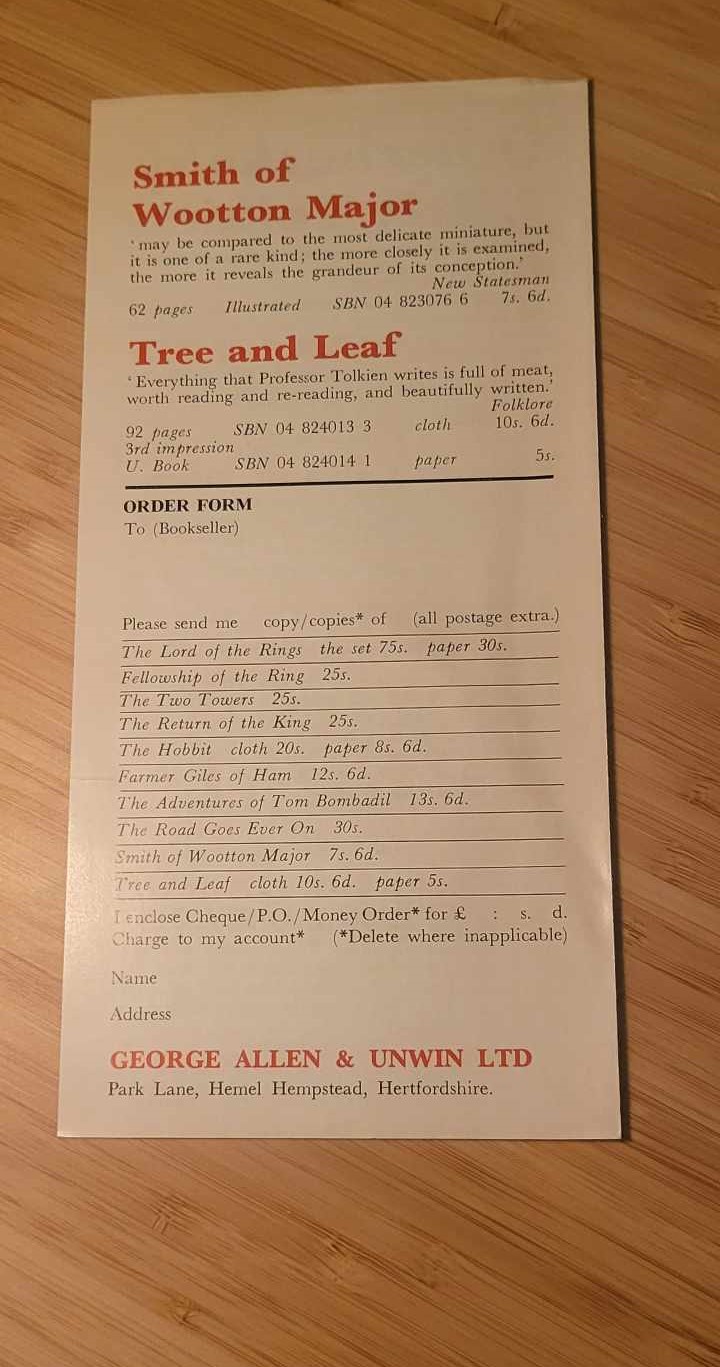 Smith of
Wootton Major
‘may be compared to the most delicate miniature, but
it is one of a rare kind; the more closely it is examined,
the more it reveals the grandeur of its conception.’
New Statesman
62 pages Illustrated SBN 04 823076 6 7s. 6d.
Tree and Leaf
‘Everything that Professor Tolkien writes is full of meat,
worth reading and re-reading, and beautifully written.’
Folklore
92 pages SBN 04 824013 3 cloth 10s. 6d.
3rd impression
U. Book SBN 04 824014 1 paper 5s.
ORDER FORM
To (Bookseller)
Please send me copy/copies* of (all postage extra.)
The Lord of the Rings the set 75s. paper 30s.
Fellowship of the Ring 25s.
The Two Towers 25s.
The Return of the King 25s.
The Hobbit cloth 20s. paper 8s. 6d.
Farmer Giles of Ham 12s. 6d.
The Adventures of Tom Bombadil 13s. 6d.
The Road Goes Ever On 30s.
Smith of Wootton Major 7s. 6d.
Tree and Leaf cloth 10s. 6d. paper 5s.
I enclose Cheque/P.O./Money Order* for £ : s. d.
Charge to my account* (*Delete where inapplicable)
Name
Address
GEORGE ALLEN & UNWIN LTD
Park Lane, Hemel Hempstead, Hertfordshire.